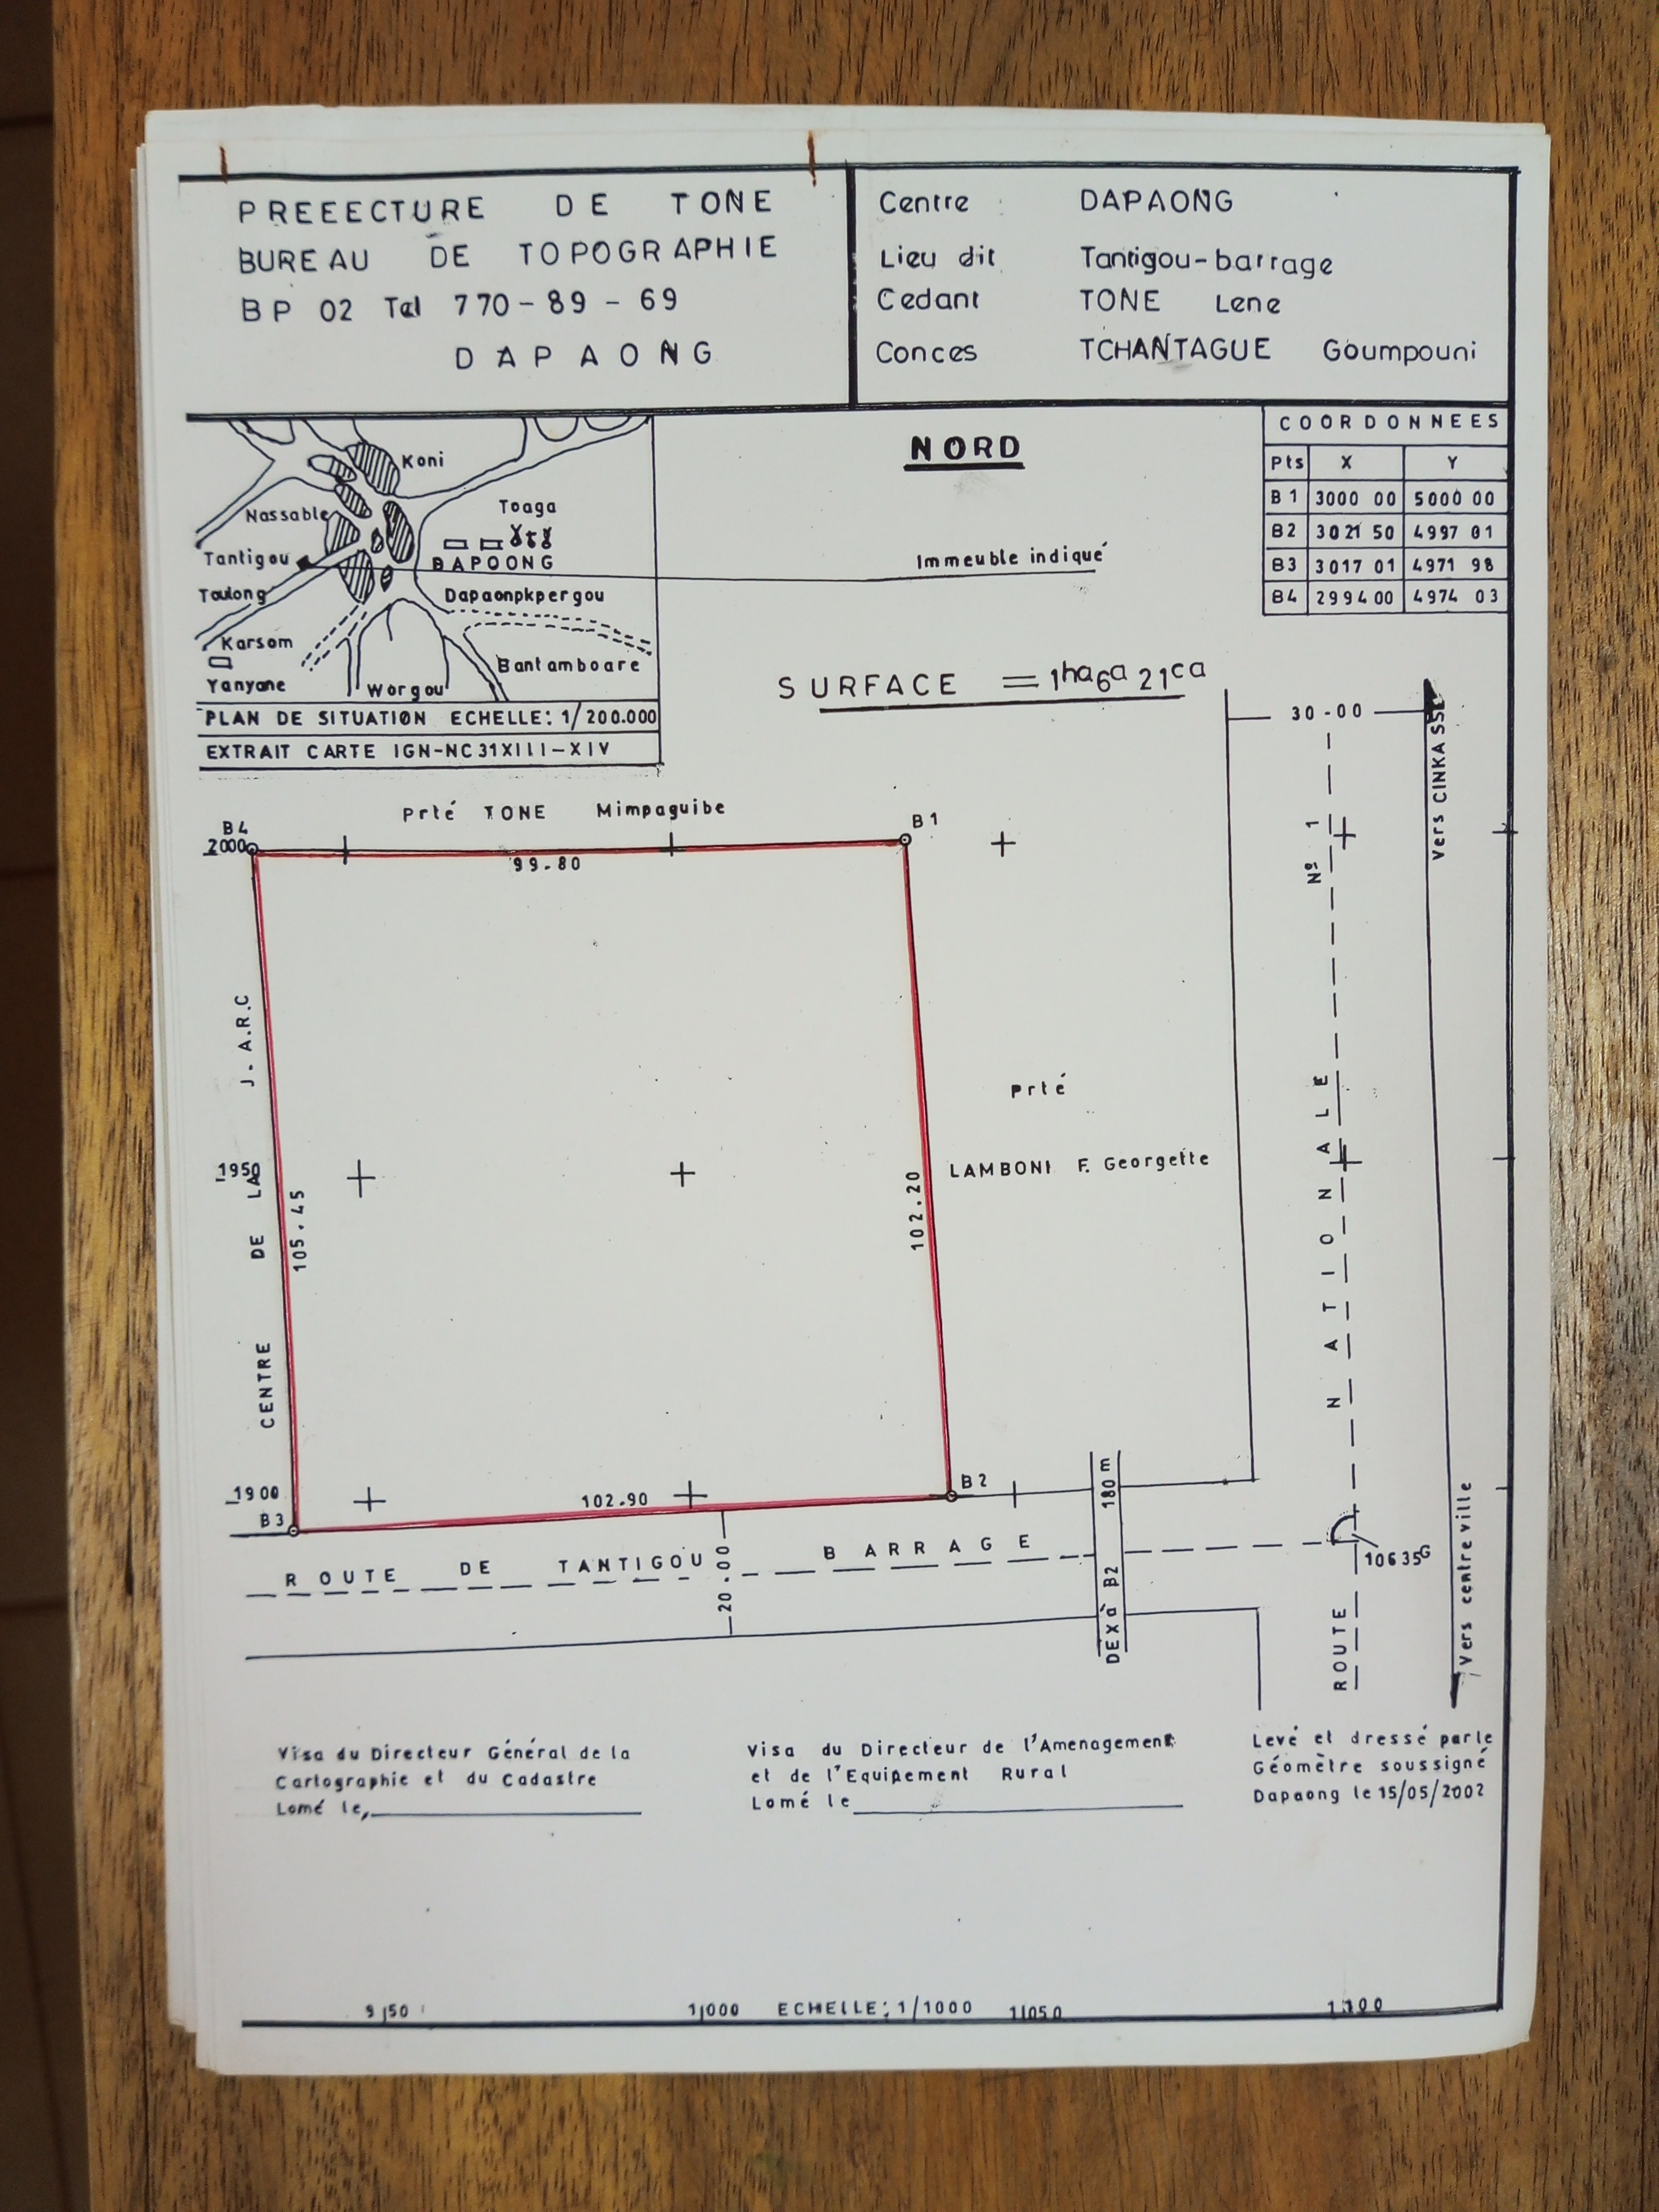 PREEECTURE DE TONE
BUREAU DE TOPOGRAPHIE
BP 02 Tel 770-89-69
DAPAONG
Centre : DAPAONG
Lieu dit Tantigou-barrage
Cedant TONE Lene
Conces TCHANTAGUE Goumpouni
Koni
Nassable
Toaga
Tantigou
DAPOONG
Toulong
Dapaonpkpergou
Karsom
Bantamboare
Yanyane
Worgou
PLAN DE SITUATION ECHELLE: 1/200.000
EXTRAIT CARTE IGN-NC31XIII-XIV
NORD
Immeuble indiqué
SURFACE = 1ha6a21ca
COORDONNEES
Pts X Y
B1 3000 00 5000 00
B2 3021 50 4997 01
B3 3017 01 4971 98
B4 2994 00 4974 03
30-00
Vers CINKASSE
Prté TONE Mimpaguibe
B4
2000
B1
99.80
N° 1
CENTRE DE LA J.A.R.C
Prté
LAMBONI F. Georgette
1950
105.45
102.20
ROUTE NATIONALE
1900
B3
102.90
B2
180 m
DEX à B2
ROUTE DE TANTIGOU BARRAGE
20.00
10635G
Vers centre ville
Visa du Directeur Général de la
Cartographie et du Cadastre
Lomé le,
Visa du Directeur de l'Amenagement
et de l'Equipement Rural
Lomé le
Levé et dressé par le
Géomètre soussigné
Dapaong le 15/05/2002
9|50
1|000 ECHELLE: 1/1000 1|050
1|100